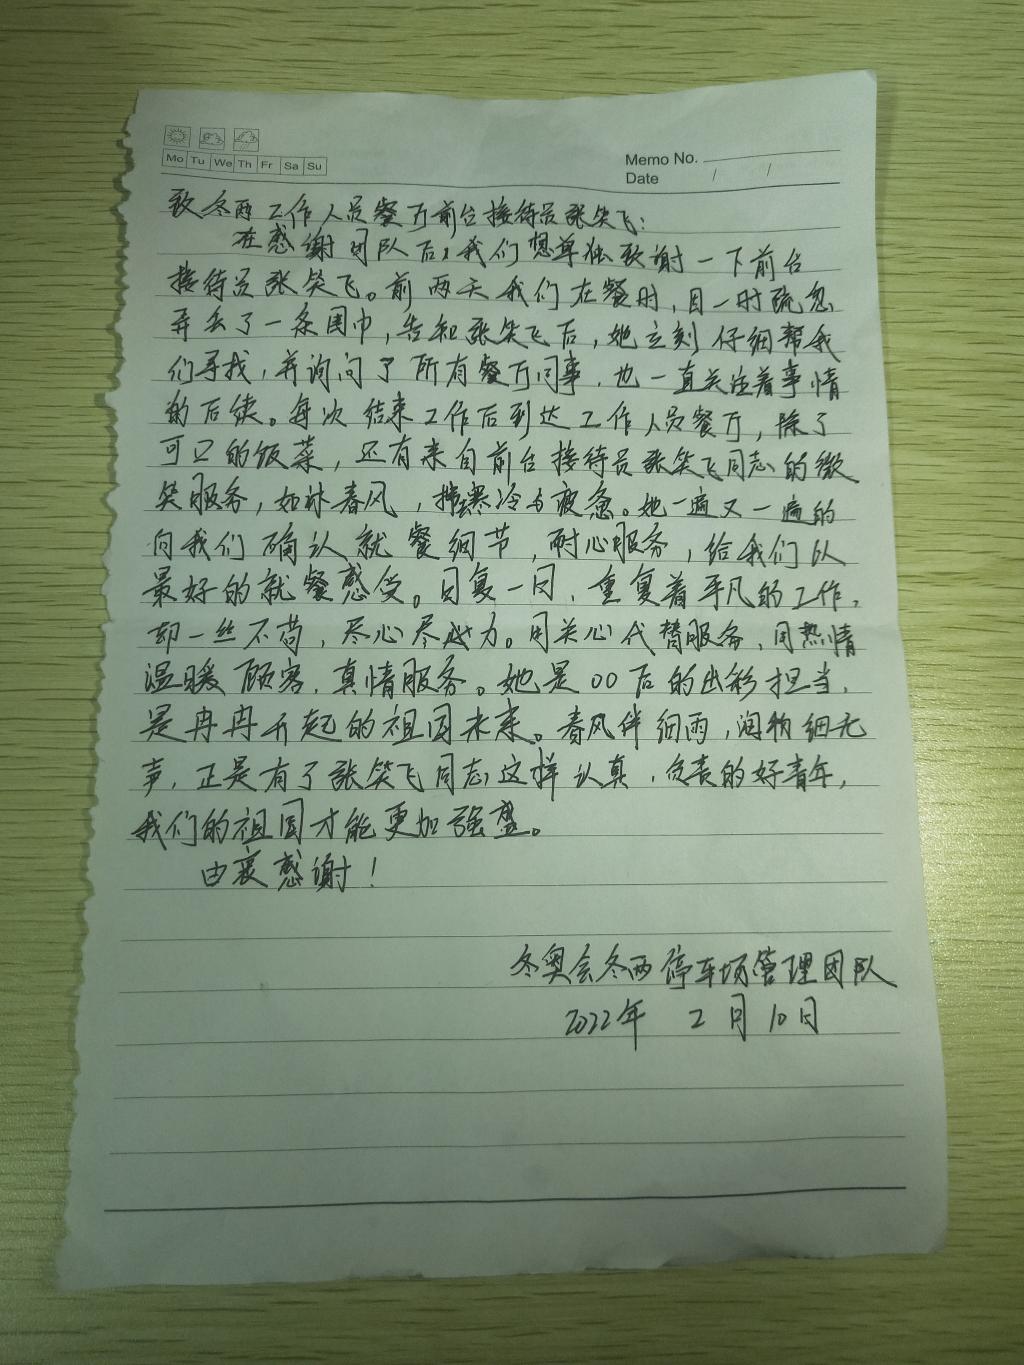 Mo Tu We Th Fr Sa Su
Memo No.
Date / /
致冬两工作人员餐厅前台接待员张笑飞：
在感谢团队后，我们想单独致谢一下前台
接待员张笑飞。前两天我们在餐时，因一时疏忽
弄丢了一条围巾，告知张笑飞后，她立刻仔细帮我
们寻找，并询问了所有餐厅同事，也一直关注着事情
的后续。每次结束工作后到达工作人员餐厅，除了
可口的饭菜，还有来自前台接待员张笑飞同志的微
笑服务，如沐春风，掸寒冷与疲惫。她一遍又一遍的
向我们确认就餐细节，耐心服务，给我们以
最好的就餐感受。日复一日，重复着平凡的工作，
却一丝不苟，尽心尽力。用关心代替服务，用热情
温暖顾客，真情服务。她是00后的出彩担当，
是冉冉升起的祖国未来。春风伴细雨，润物细无
声，正是有了张笑飞同志这样认真，负责的好青年，
我们的祖国才能更加强盛。
由衷感谢！
冬奥会冬两停车场管理团队
2022年 2月10日